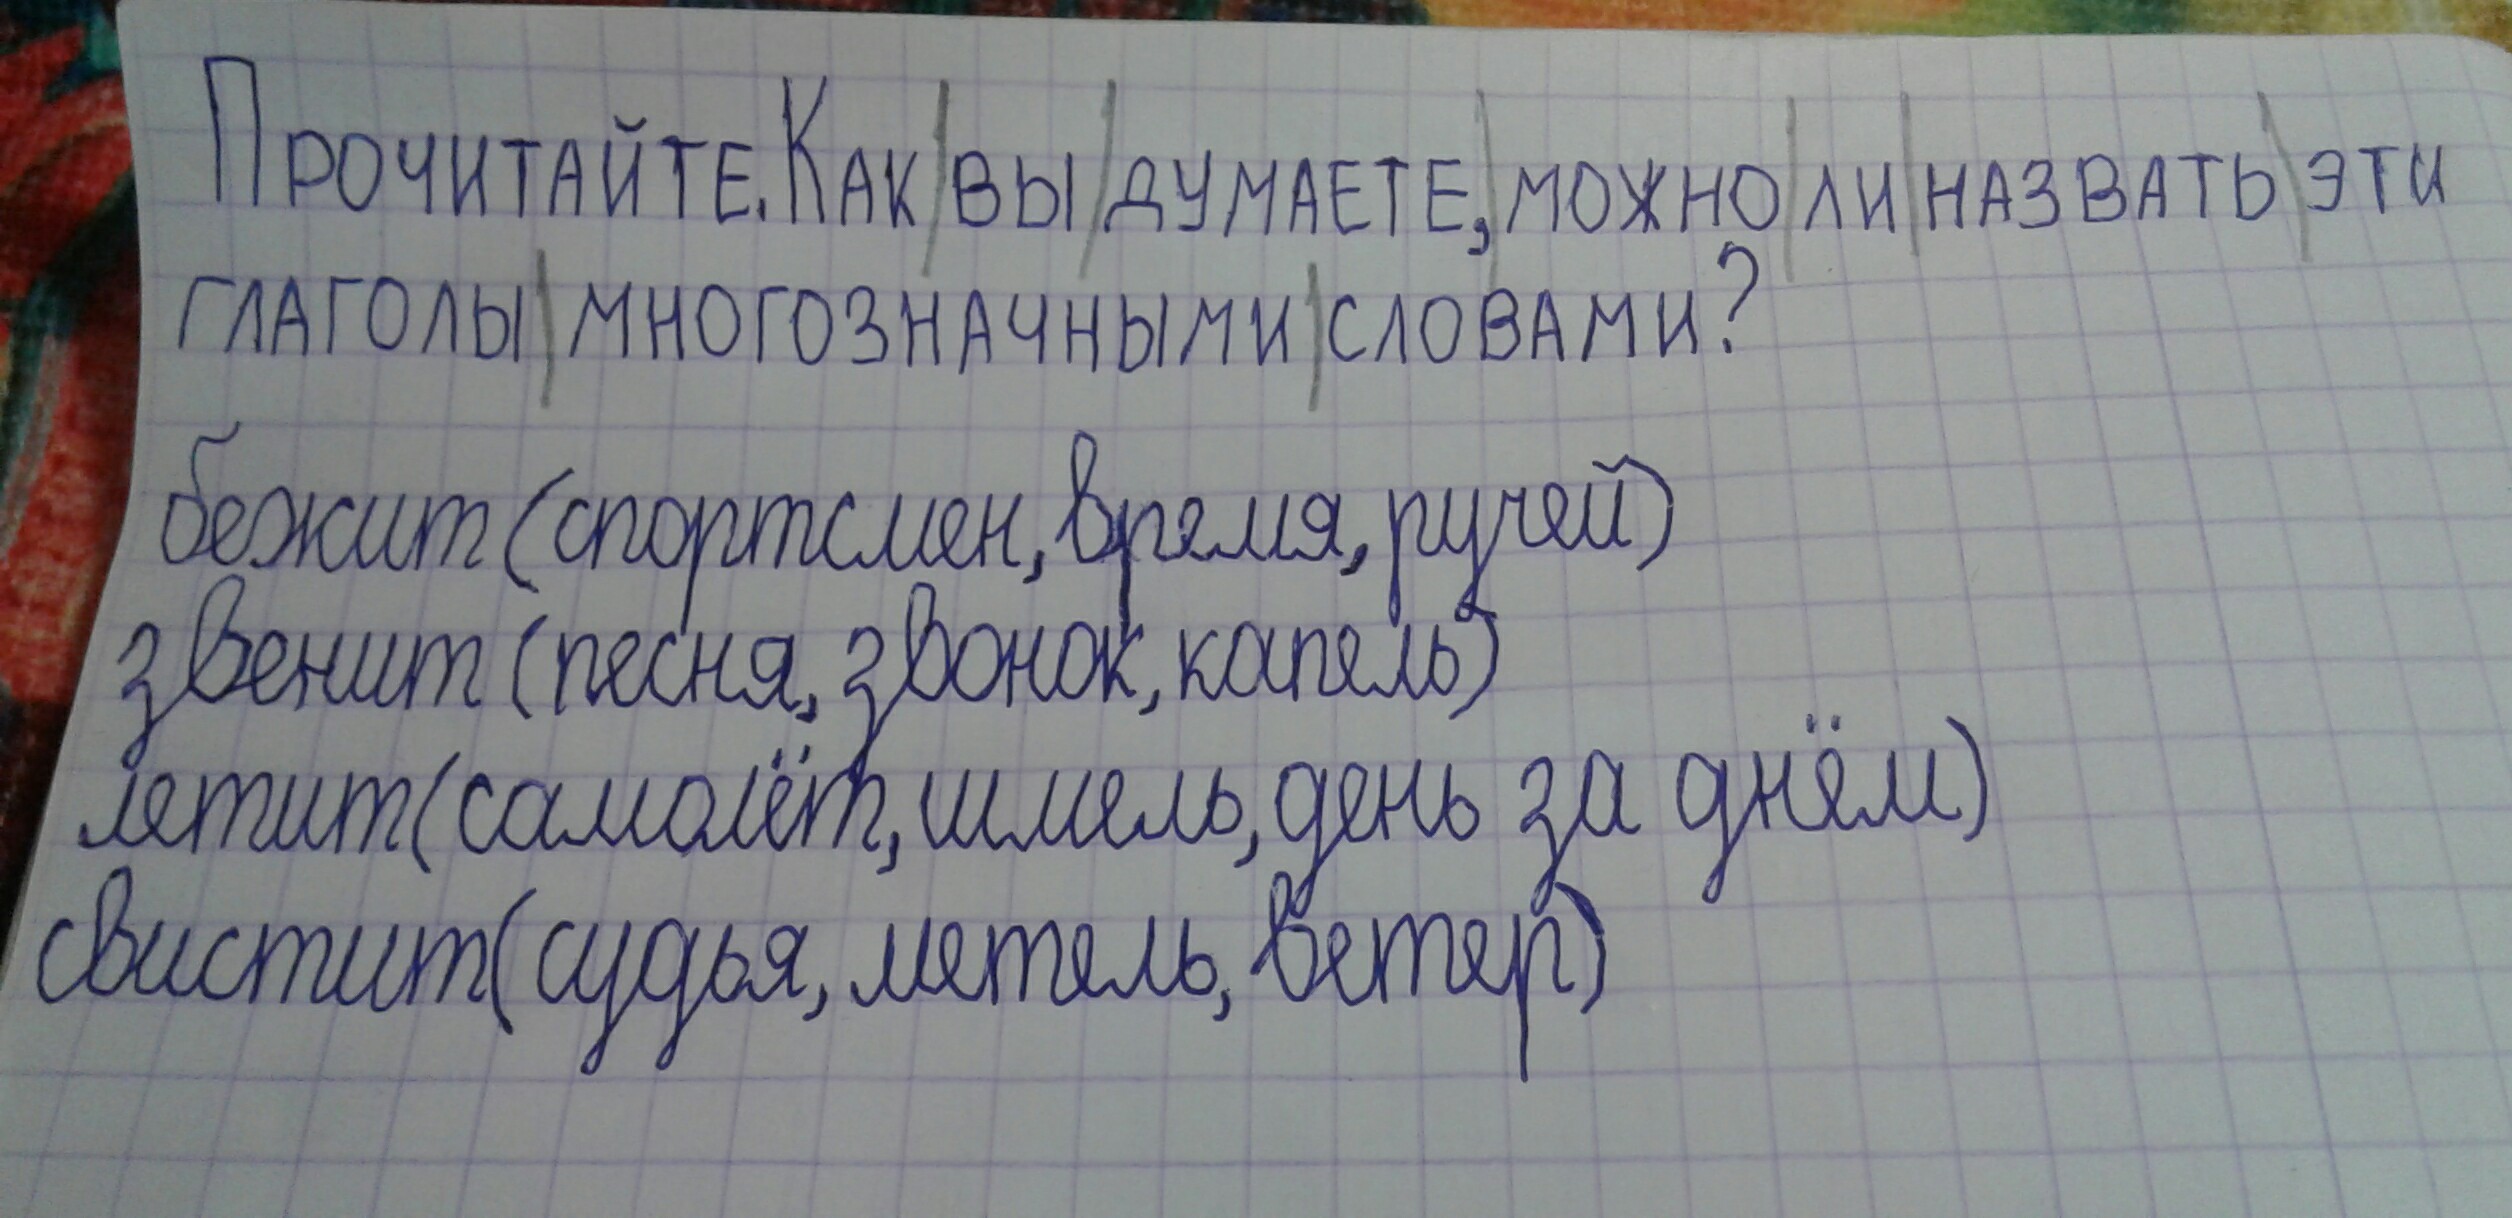 Прочитайте. Как вы думаете, можно ли назвать эти
глаголы многозначными словами?
бежит (спортсмен, время, ручей)
звенит (песня, звонок, капель)
летит (самолёт, шмель, день за днём)
свистит (судья, метель, ветер)